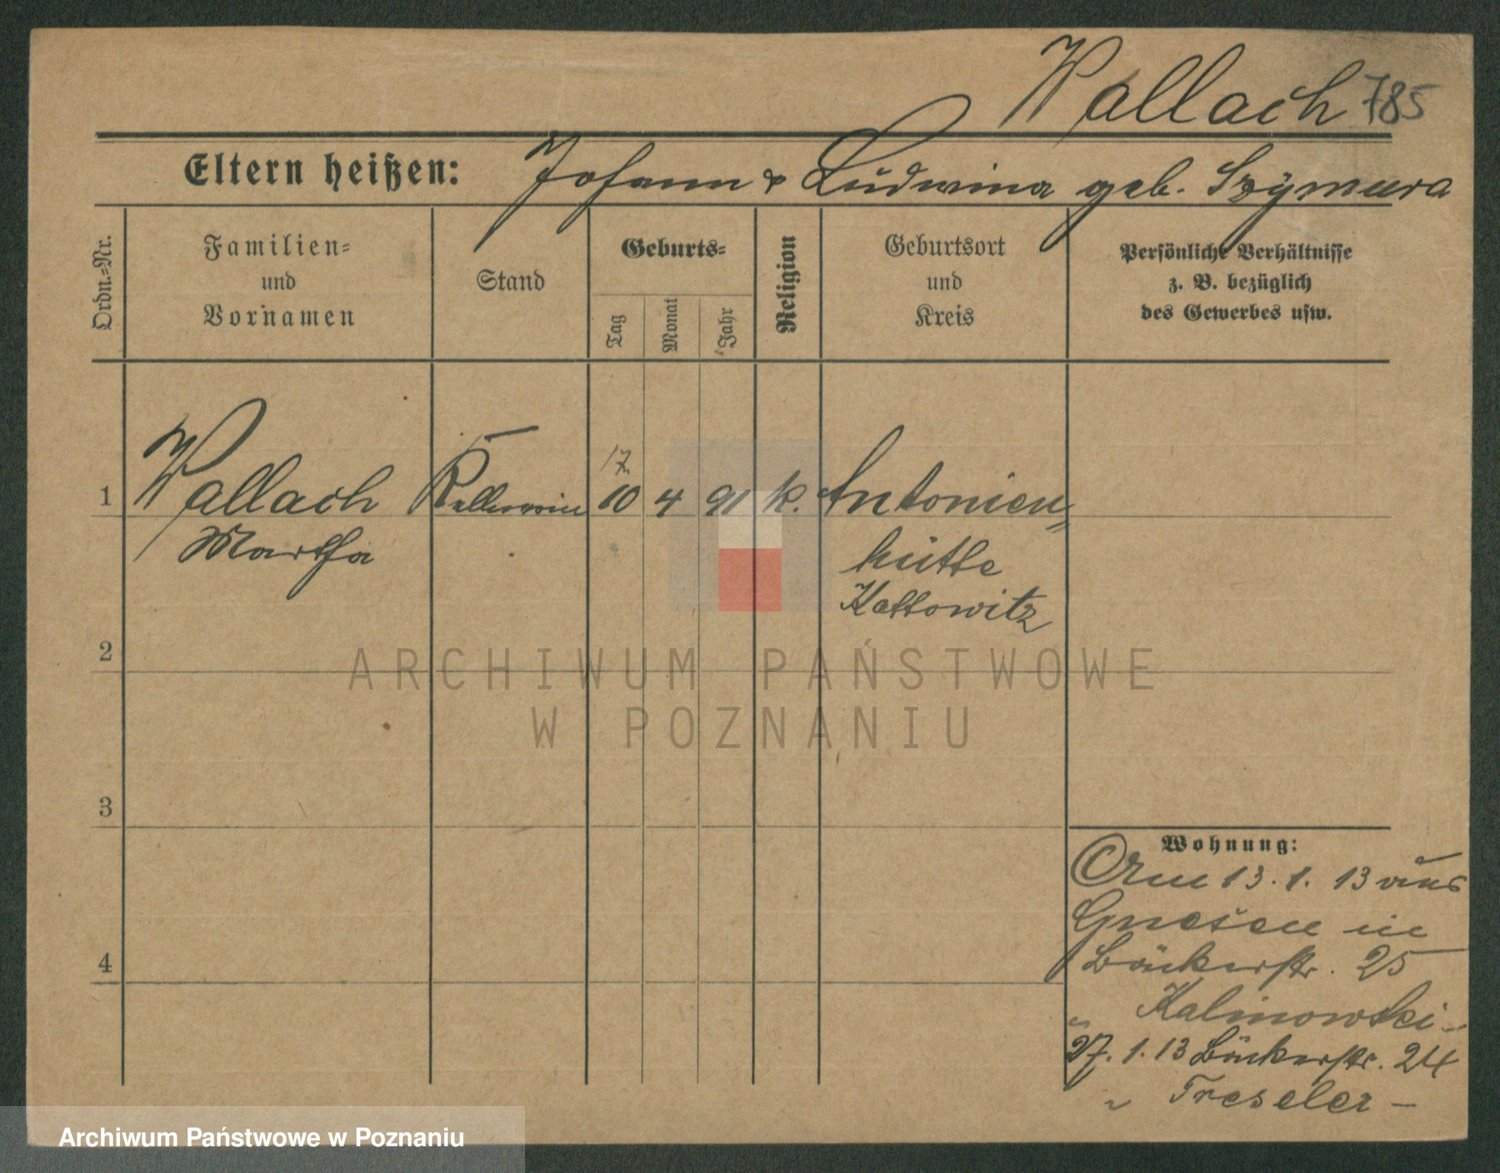 Wallach 785
Eltern heißen: Johann & Ludwina geb. Szymura
Ordn.=Nr.
Familien=
und
Vornamen
Stand
Geburts=
Tag
Monat
Jahr
Religion
Geburtsort
und
Kreis
Persönliche Verhältnisse
z. B. bezüglich
des Gewerbes usw.
17.
1 Wallach Kellnerin 10 4 91 k. Antonien=
Martha
hütte
Kattowitz
2
3
4
Wohnung:
Am 13. 1. 13 aus
Gnesen in
Bäckerstr. 25
Kalinowski -
27. 1. 13 Bäckerstr. 24
Treseler -
ARCHIWUM PAŃSTWOWE
W POZNANIU
Archiwum Państwowe w Poznaniu